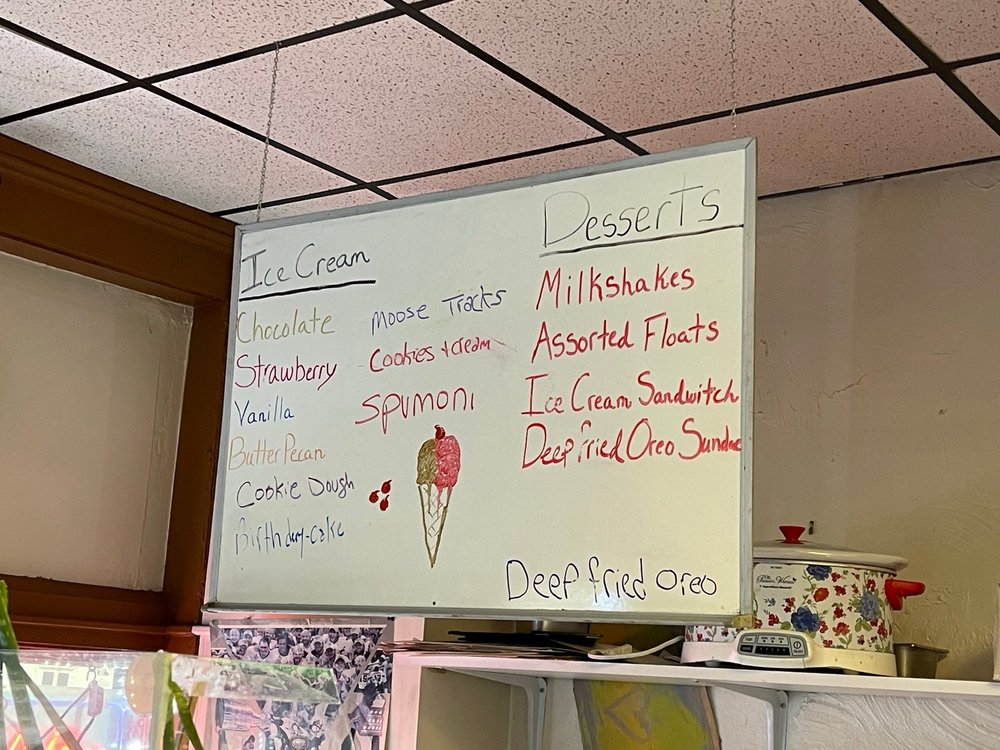 Ice Cream
Chocolate
Strawberry
Vanilla
Butter Pecan
Cookie Dough
Birthday-cake
Moose Tracks
Cookies + cream
Spumoni
Desserts
Milkshakes
Assorted Floats
Ice Cream Sandwitch
Deep fried Oreo Sundae
Deep fried Oreo